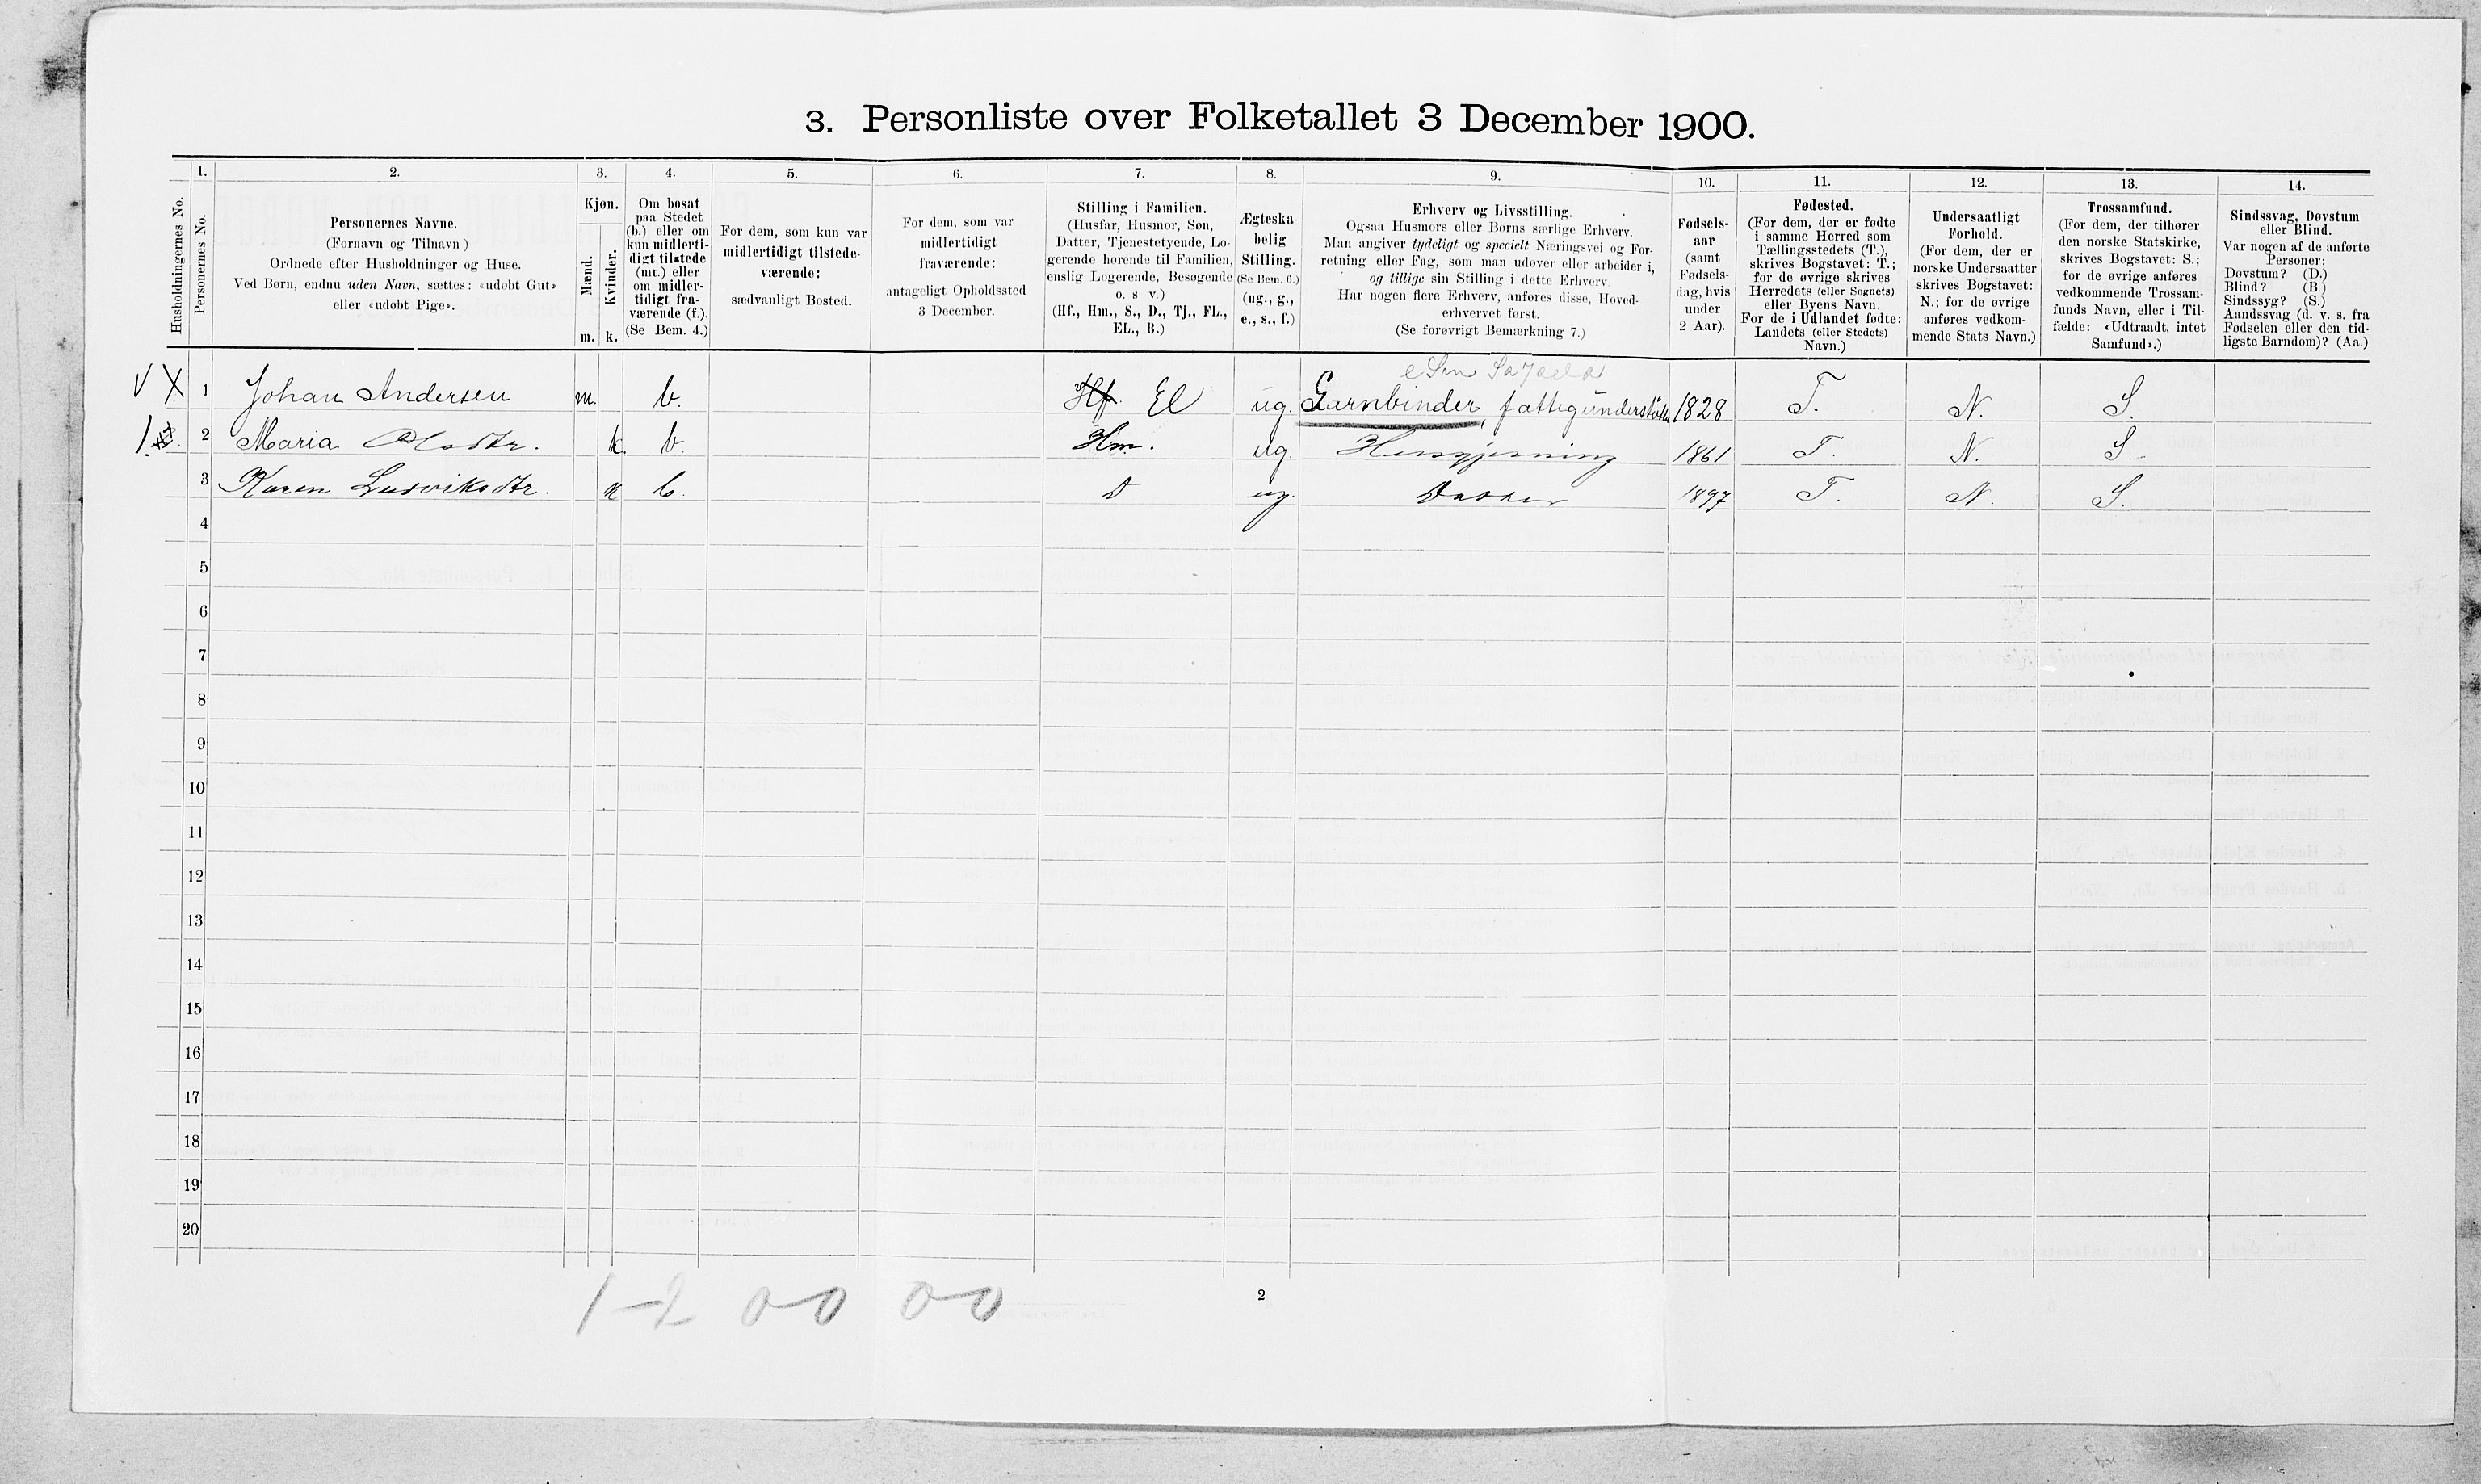 3. Personliste over Folketallet 3 December 1900.
Husholdningernes No.
1. Personernes No.
2. Personernes Navne.
(Fornavn og Tilnavn)
Ordnede efter Husholdninger og Huse.
Ved Børn, endnu uden Navn, sættes: «udøbt Gut»
eller «udøbt Pige».
3. Kjøn.
Mænd. m.
Kvinder. k.
4. Om bosat
paa Stedet
(b.) eller om
kun midlerti-
digt tilstede
(mt.) eller
om midler-
tidigt fra-
værende (f.).
(Se Bem. 4.)
5. For dem, som kun var
midlertidigt tilstede-
værende:
sædvanligt Bosted.
6. For dem, som var
midlertidigt
fraværende:
antageligt Opholdssted
3 December.
7. Stilling i Familien.
(Husfar, Husmor, Søn,
Datter, Tjenestetyende, Lo-
gerende hørende til Familien,
enslig Logerende, Besøgende
o. s v.)
(Hf., Hm., S., D., Tj., FL.,
EL., B.)
8. Ægteska-
belig
Stilling.
(Se Bem. 6.)
(ug., g.,
e., s., f.)
9. Erhverv og Livsstilling.
Ogsaa Husmors eller Børns særlige Erhverv.
Man angiver tydeligt og specielt Næringsvei og For-
retning eller Fag, som man udøver eller arbeider i,
og tillige sin Stilling i dette Erhverv.
Har nogen flere Erhverv, anføres disse, Hoved-
erhvervet først.
(Se forøvrigt Bemærkning 7.)
10. Fødsels-
aar
(samt
Fødsels-
dag, hvis
under
2 Aar).
11. Fødested.
(For dem, der er fødte
i samme Herred som
Tællingsstedets (T.),
skrives Bogstavet: T.;
for de øvrige skrives
Herredets (eller Sognets)
eller Byens Navn.
For de i Udlandet fødte:
Landets (eller Stedets)
Navn.)
12. Undersaatligt
Forhold.
(For dem, der er
norske Undersaatter
skrives Bogstavet:
N.; for de øvrige
anføres vedkom-
mende Stats Navn.)
13. Trossamfund.
(For dem, der tilhører
den norske Statskirke,
skrives Bogstavet: S.;
for de øvrige anføres
vedkommende Trossam-
funds Navn, eller i Til-
fælde: «Udtraadt, intet
Samfund».)
14. Sindssvag, Døvstum
eller Blind.
Var nogen af de anførte
Personer:
Døvstum? (D.)
Blind? (B.)
Sindssyg? (S.)
Aandssvag (d. v. s. fra
Fødselen eller den tid-
ligste Barndom)? (Aa.)
1 Johan Andersen m. b. Hf. El ug. Garnbinder, fattigunderstøttet 1828 T. N. S.
2 Maria Olsdtr. k. b. Hm. ug. Husgjerning 1861 T. N. S.
3 Karen Ludviksdtr. k b. D ug. Datter 1897 T. N. S.
4
5
6
7
8
9
10
11
12
13
14
15
16
17
18
19
20
1-2 0-0 0-0
2